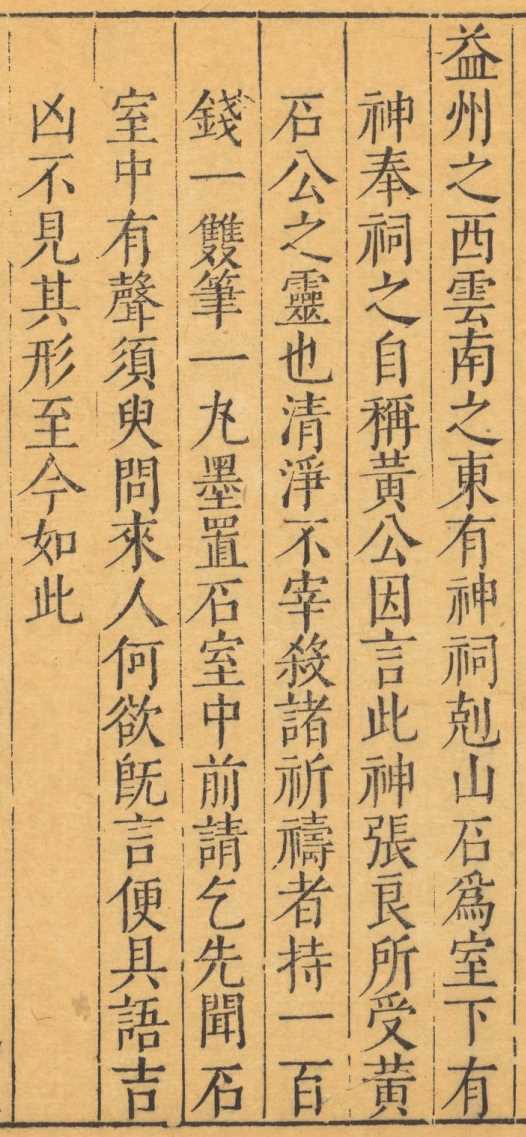 益州之西雲南之東有神祠剋山石為室下有
神奉祠之自稱黃公因言此神張良所受黃
石公之靈也清淨不宰殺諸祈禱者持一百
錢一雙筆一丸墨置石室中前請乞先聞石
室中有聲須臾問來人何欲旣言便具語吉
凶不見其形至今如此